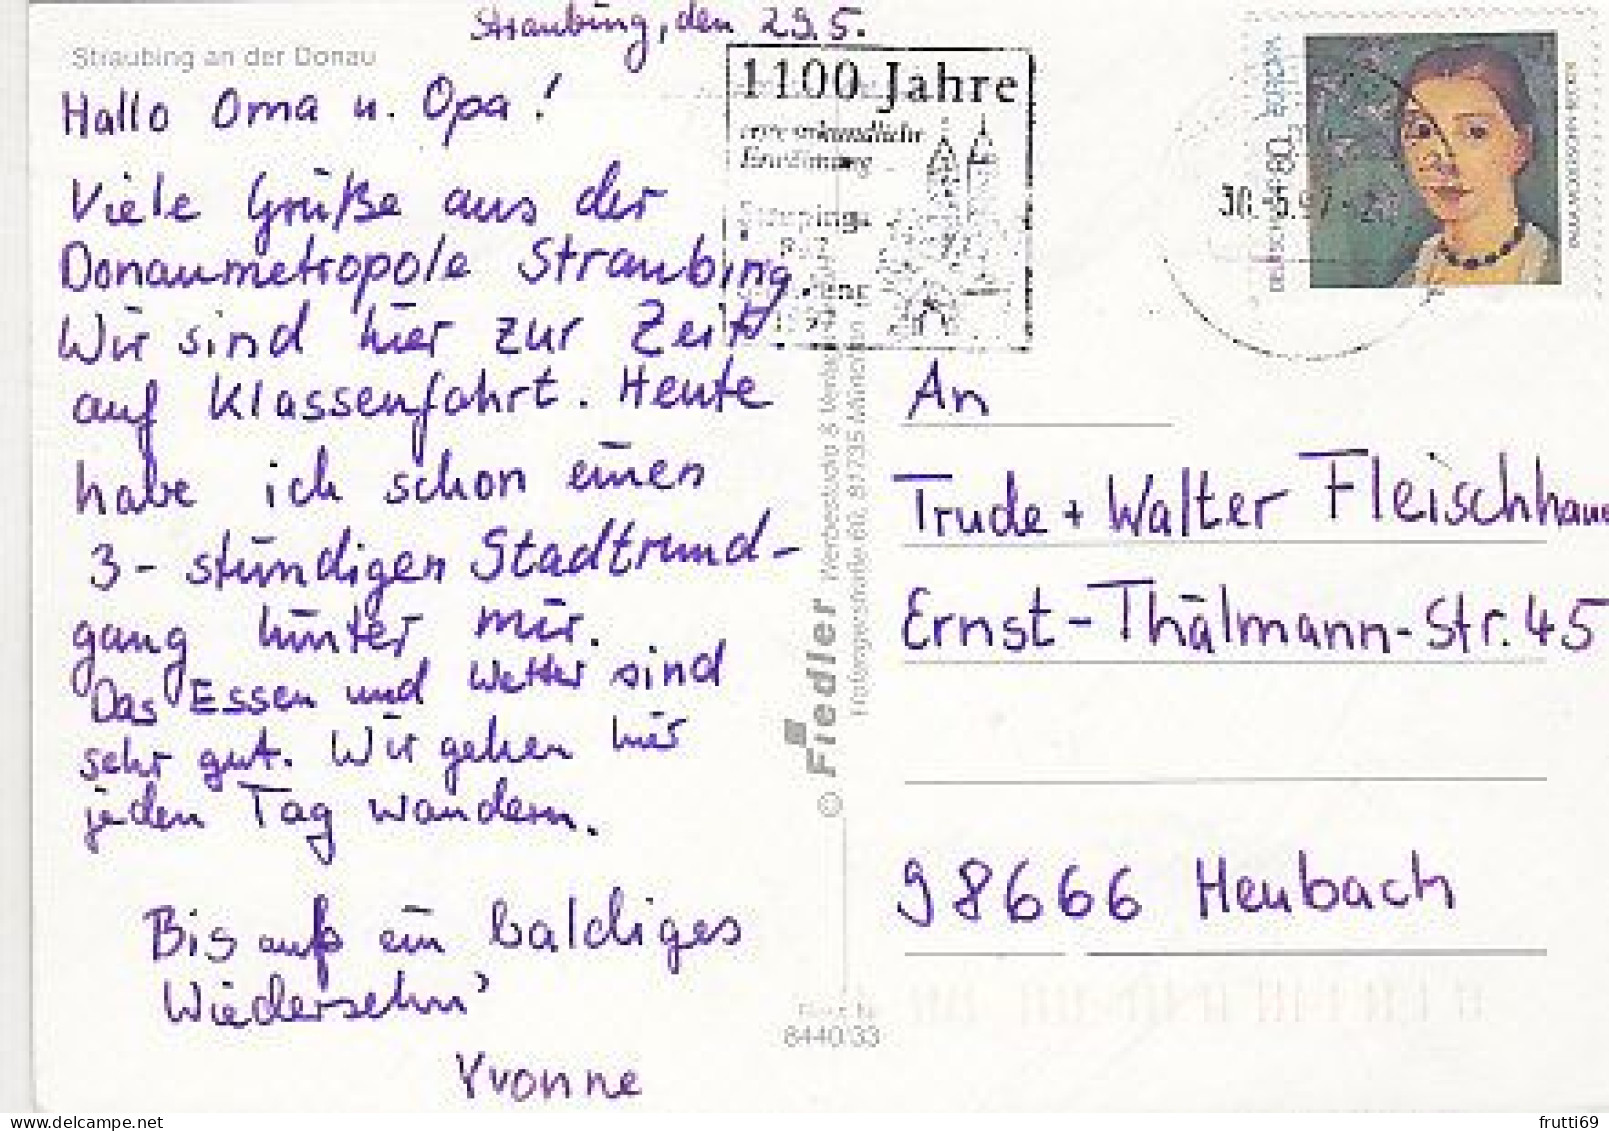 Straubing, den 29.5.
Straubing an der Donau
Hallo Oma u. Opa!
Viele Grüße aus der
Donaumetropole Straubing
Wir sind hier zur Zeit
auf Klassenfahrt. Heute
habe ich schon einen
3-stündigen Stadtrund-
gang hinter mir.
Das Essen und Wetter sind
sehr gut. Wir gehen hier
jeden Tag wandern.
Bis auf ein baldiges
Wiedersehn'
Yvonne
1100 Jahre
urkundliche
Erwähnung
Straubings
897
1997
30.-5.97
EUROPA
80
DEUTSCHLAND
PAULA MODERSOHN-BECKER
© Fiedler Werbestudio & Verlag
Fraße 60, 81735 München
8440/33
An
Trude + Walter Fleischhau
Ernst-Thälmann-Str. 45
98666 Heubach
frutti69